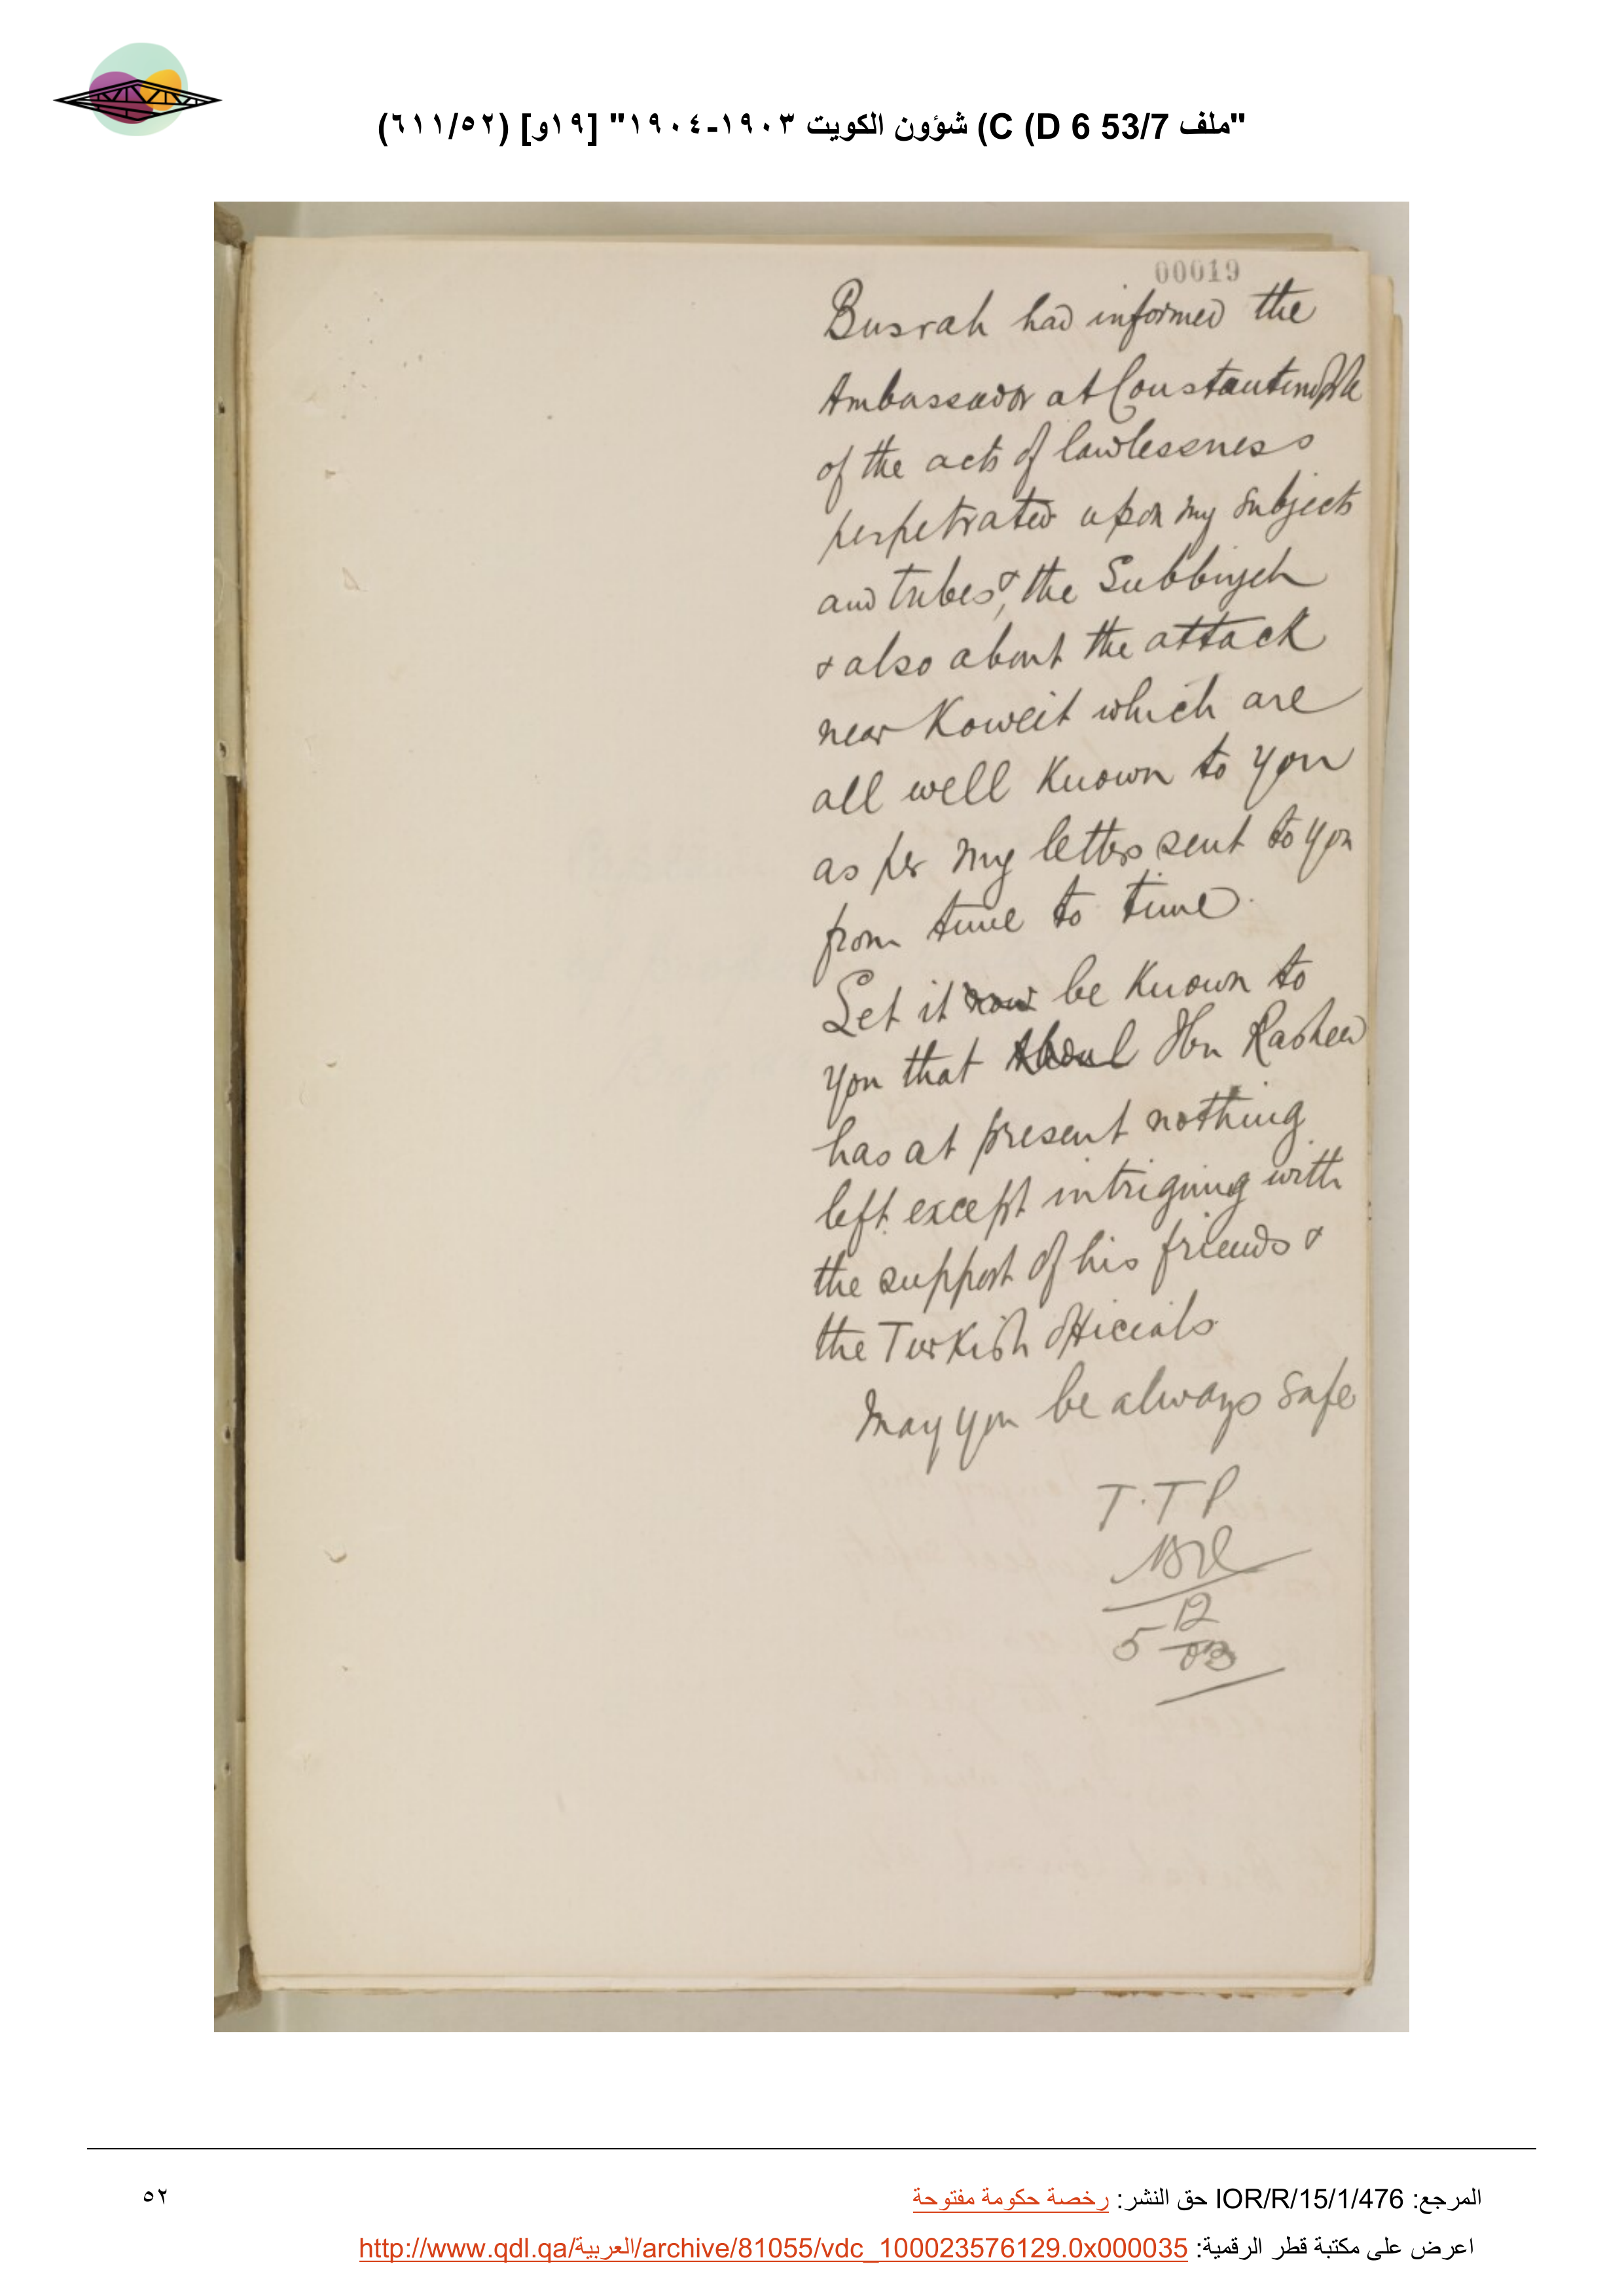 "ملف 53/7 D 6) C) شؤون الكويت ١٩٠٣-١٩٠٤" [١٩و] (٥٢/٦١١)
00019
Busrah had informed the
Ambassador at Constantinople
of the acts of lawlessness
perpetrated upon my subjects
and tribes &, the Subbiyeh
& also about the attack
near Koweit which are
all well known to you
as per my letters sent to you
from time to time.
Let it now be known to
you that Ibn Rasheed
has at present nothing
left except intriguing with
the support of his friends &
the Turkish officials
May you be always safe
T.T.P
5 12/03
المرجع: IOR/R/15/1/476 حق النشر: رخصة حكومة مفتوحة
٥٢
اعرض على مكتبة قطر الرقمية: http://www.qdl.qa/العربية/archive/81055/vdc_100023576129.0x000035